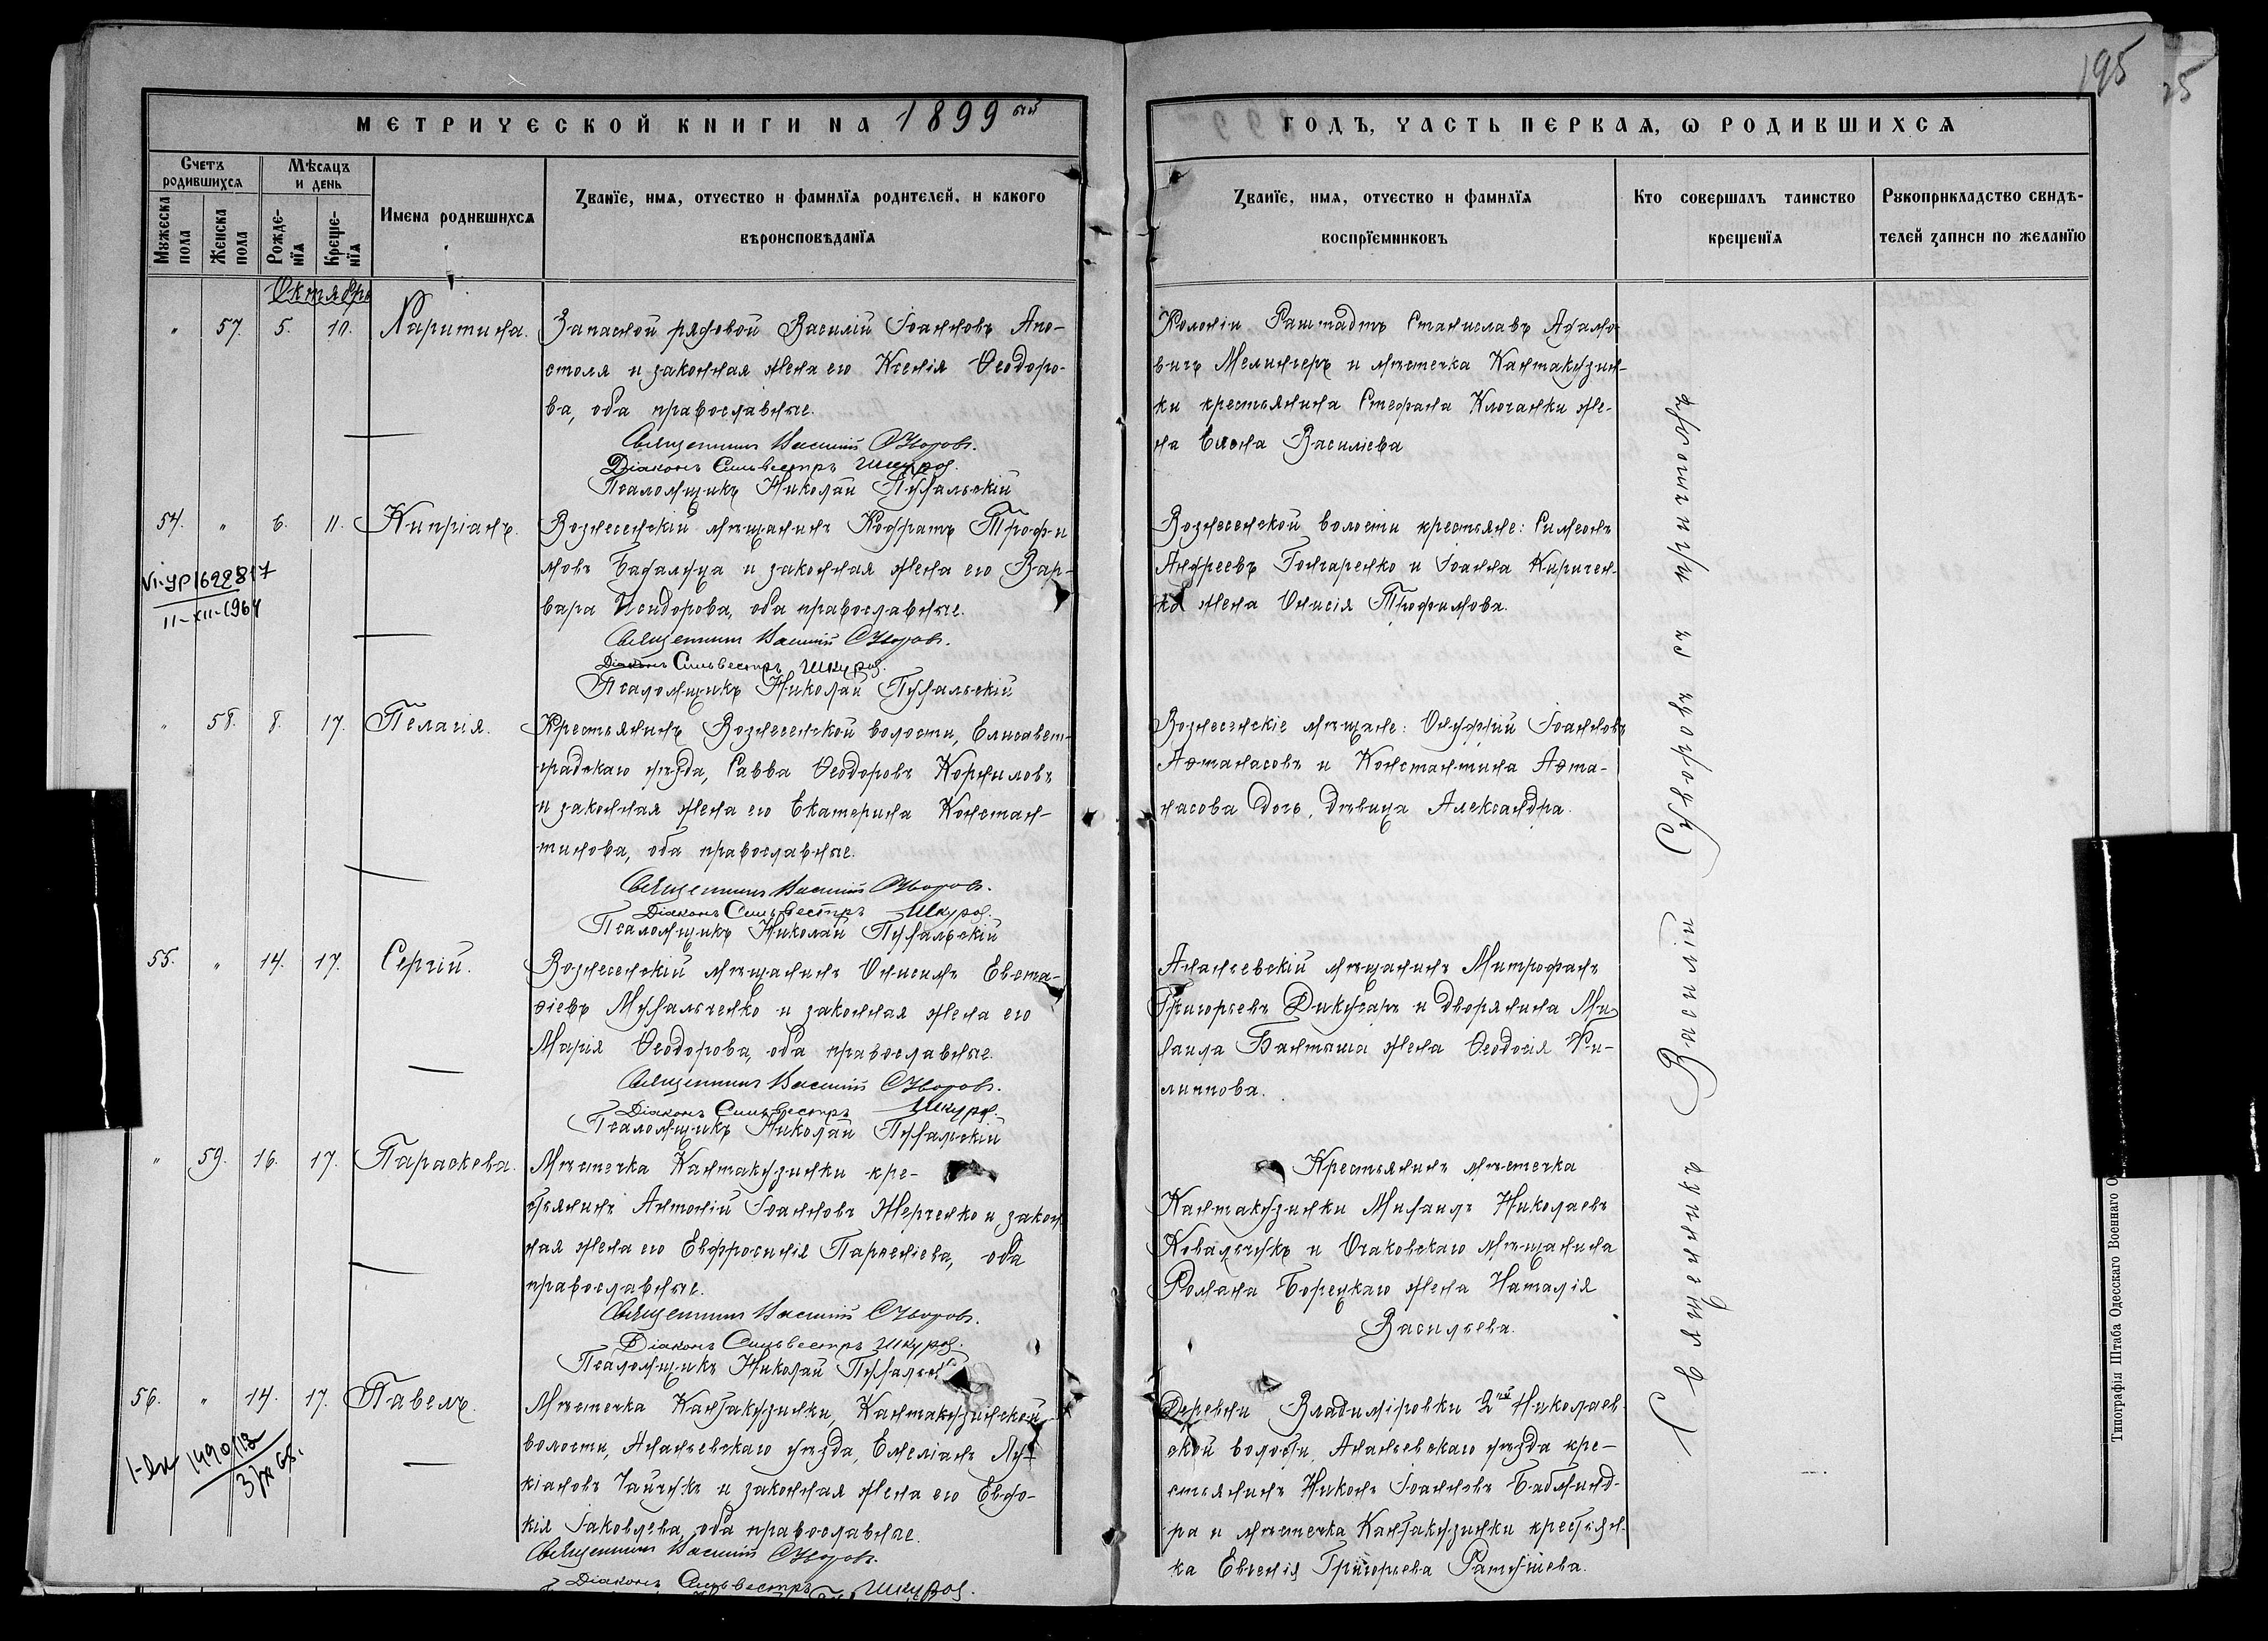 195
МЕТРИЧЕСКОЙ КНИГИ НА 1899 ый
ГОДЪ, ЧАСТЬ ПЕРВАЯ, Ѡ РОДИВШИХСЯ
Счетъ родившихся
Мѣсяцъ и день
Мужеска пола
Женска пола
Рожде-нїя
Креще-нїя
Имена родившихся
Званїе, имя, отчество и фамилїя родителей, и какого
вѣроисповѣданїя
Званїе, имя, отчество и фамилїя
воспрїемниковъ
Кто совершалъ таинство
крещенїя
Рукоприкладство свидѣ-
телей записи по желанїю
Октябрь
" 57. 5. 10. Харитина.
Запасной рядовой Василій Іоанновъ Апо-
столя и законная жена его Ксенія Ѳеодоро-
ва, оба православные.
Священникъ Василій Суворовъ.
Діаконъ Сильвестръ Шкуров.
Псаломщикъ Николай Пухальскій
Колоніи Раштадтъ Станиславъ Адамо-
вичъ Мелингеръ и мѣстечка Кантакузин-
ки крестьянина Стефана Клочанки же-
на Елена Василіева
54. " 6. 11. Кипріанъ.
Вознесенскій мѣщанинъ Кодратъ Трофи
мовъ Бадалуца и законная жена его Вар-
вара Исидорова, оба православные.
Священникъ Василій Суворовъ.
Діаконъ Сильвестръ Шкуров.
Псаломщикъ Николай Пухальскій
Вознесенской волости крестьяне: Симеонъ
Андреевъ Гончаренко и Іоанна Киричен-
ко жена Онисія Трофимова.
VI-УР 622817
11-XII-1964
" 58. 8. 17. Пелагія.
Крестьянинъ Вознесенской волости, Елисавет-
градскаго уѣзда, Савва Ѳеодоровъ Корниловъ
и законная жена его Екатерина Констан-
тинова, оба православные.
Священникъ Василій Суворовъ.
Діаконъ Сильвестръ Шкуров.
Псаломщикъ Николай Пухальскій
Вознесенскіе мѣщане: Онуфрій Іоанновъ
Аѳанасовъ и Константина Аѳта-
насова дочь, дѣвица Александра.
55. " 14. 17. Сергій.
Вознесенскій мѣщанинъ Онисимъ Евста-
ѳіевъ Михальченко и законная жена его
Марія Ѳеодорова, оба православные.
Священникъ Василій Суворовъ.
Діаконъ Сильвестръ Шкуров.
Псаломщикъ Николай Пухальскій
Ананьевскій мѣщанинъ Митрофанъ
Григорьевъ Дикусаръ и дворянина Ми
хаила Бантыша жена Ѳеодосія Фи-
липпова.
" 59. 16. 17. Параскева.
Мѣстечка Кантакузинки кре-
стьянинъ Антоній Іоанновъ Жерченко и закон
ная жена его Евфросинія Парѳеніева, оба
православные.
Священникъ Василій Суворовъ.
Діаконъ Сильвестръ Шкуров.
Псаломщикъ Николай Пухальскій
Крестьянинъ мѣстечка
Кантакузинки Михаилъ Николаевъ
Ковальчукъ и Очаковскаго мѣщанина
Романа Борецкаго жена Наталія
Васильева.
56. " 14. 17. Павелъ.
Мѣстечка Кантакузинки, Кантакузинской
волости, Ананьевскаго уѣзда, Емеліанъ Лу-
кіановъ Чайчукъ и законная жена его Евдо-
кія Іаковлева, оба православные.
Священникъ Василій Суворовъ.
Діаконъ Сильвестръ Шкуров.
Деревни Владиміровки 2й Николаев-
ской волости, Ананьевскаго уѣзда кре-
стьянинъ Никонъ Іоанновъ Бабминд-
ра и мѣстечка Кантакузинки крестьян-
ка Евгенія Григорьева Ратушева.
Священникъ Василій Суворовъ съ причтомъ
Типографія Штаба Одесскаго Военнаго О